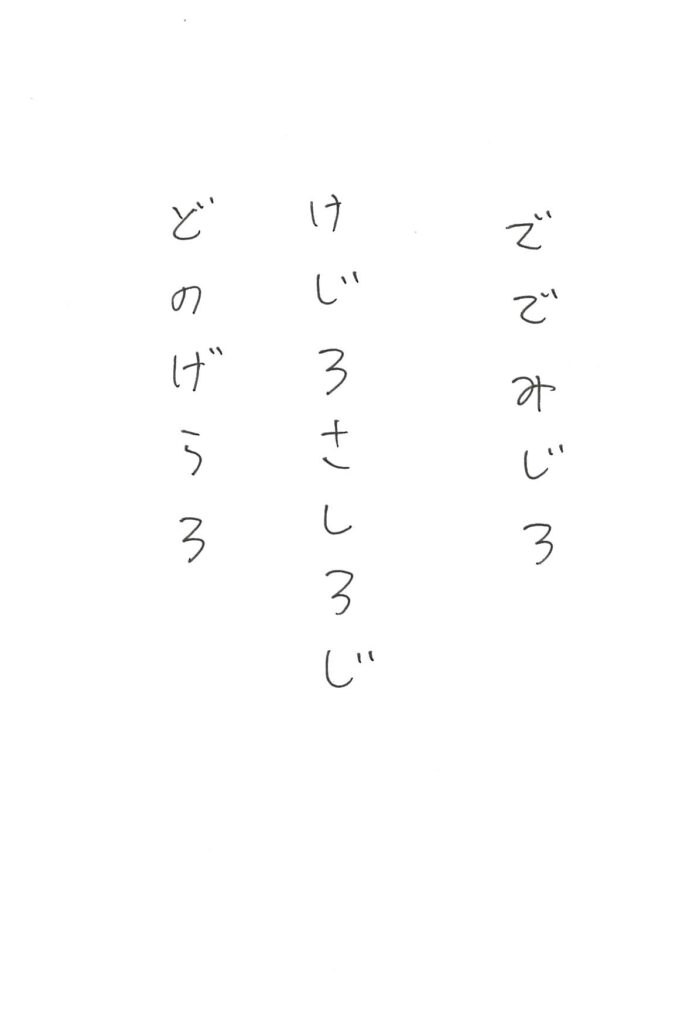 ででみじろ
けじろさしろじ
どのげうろ